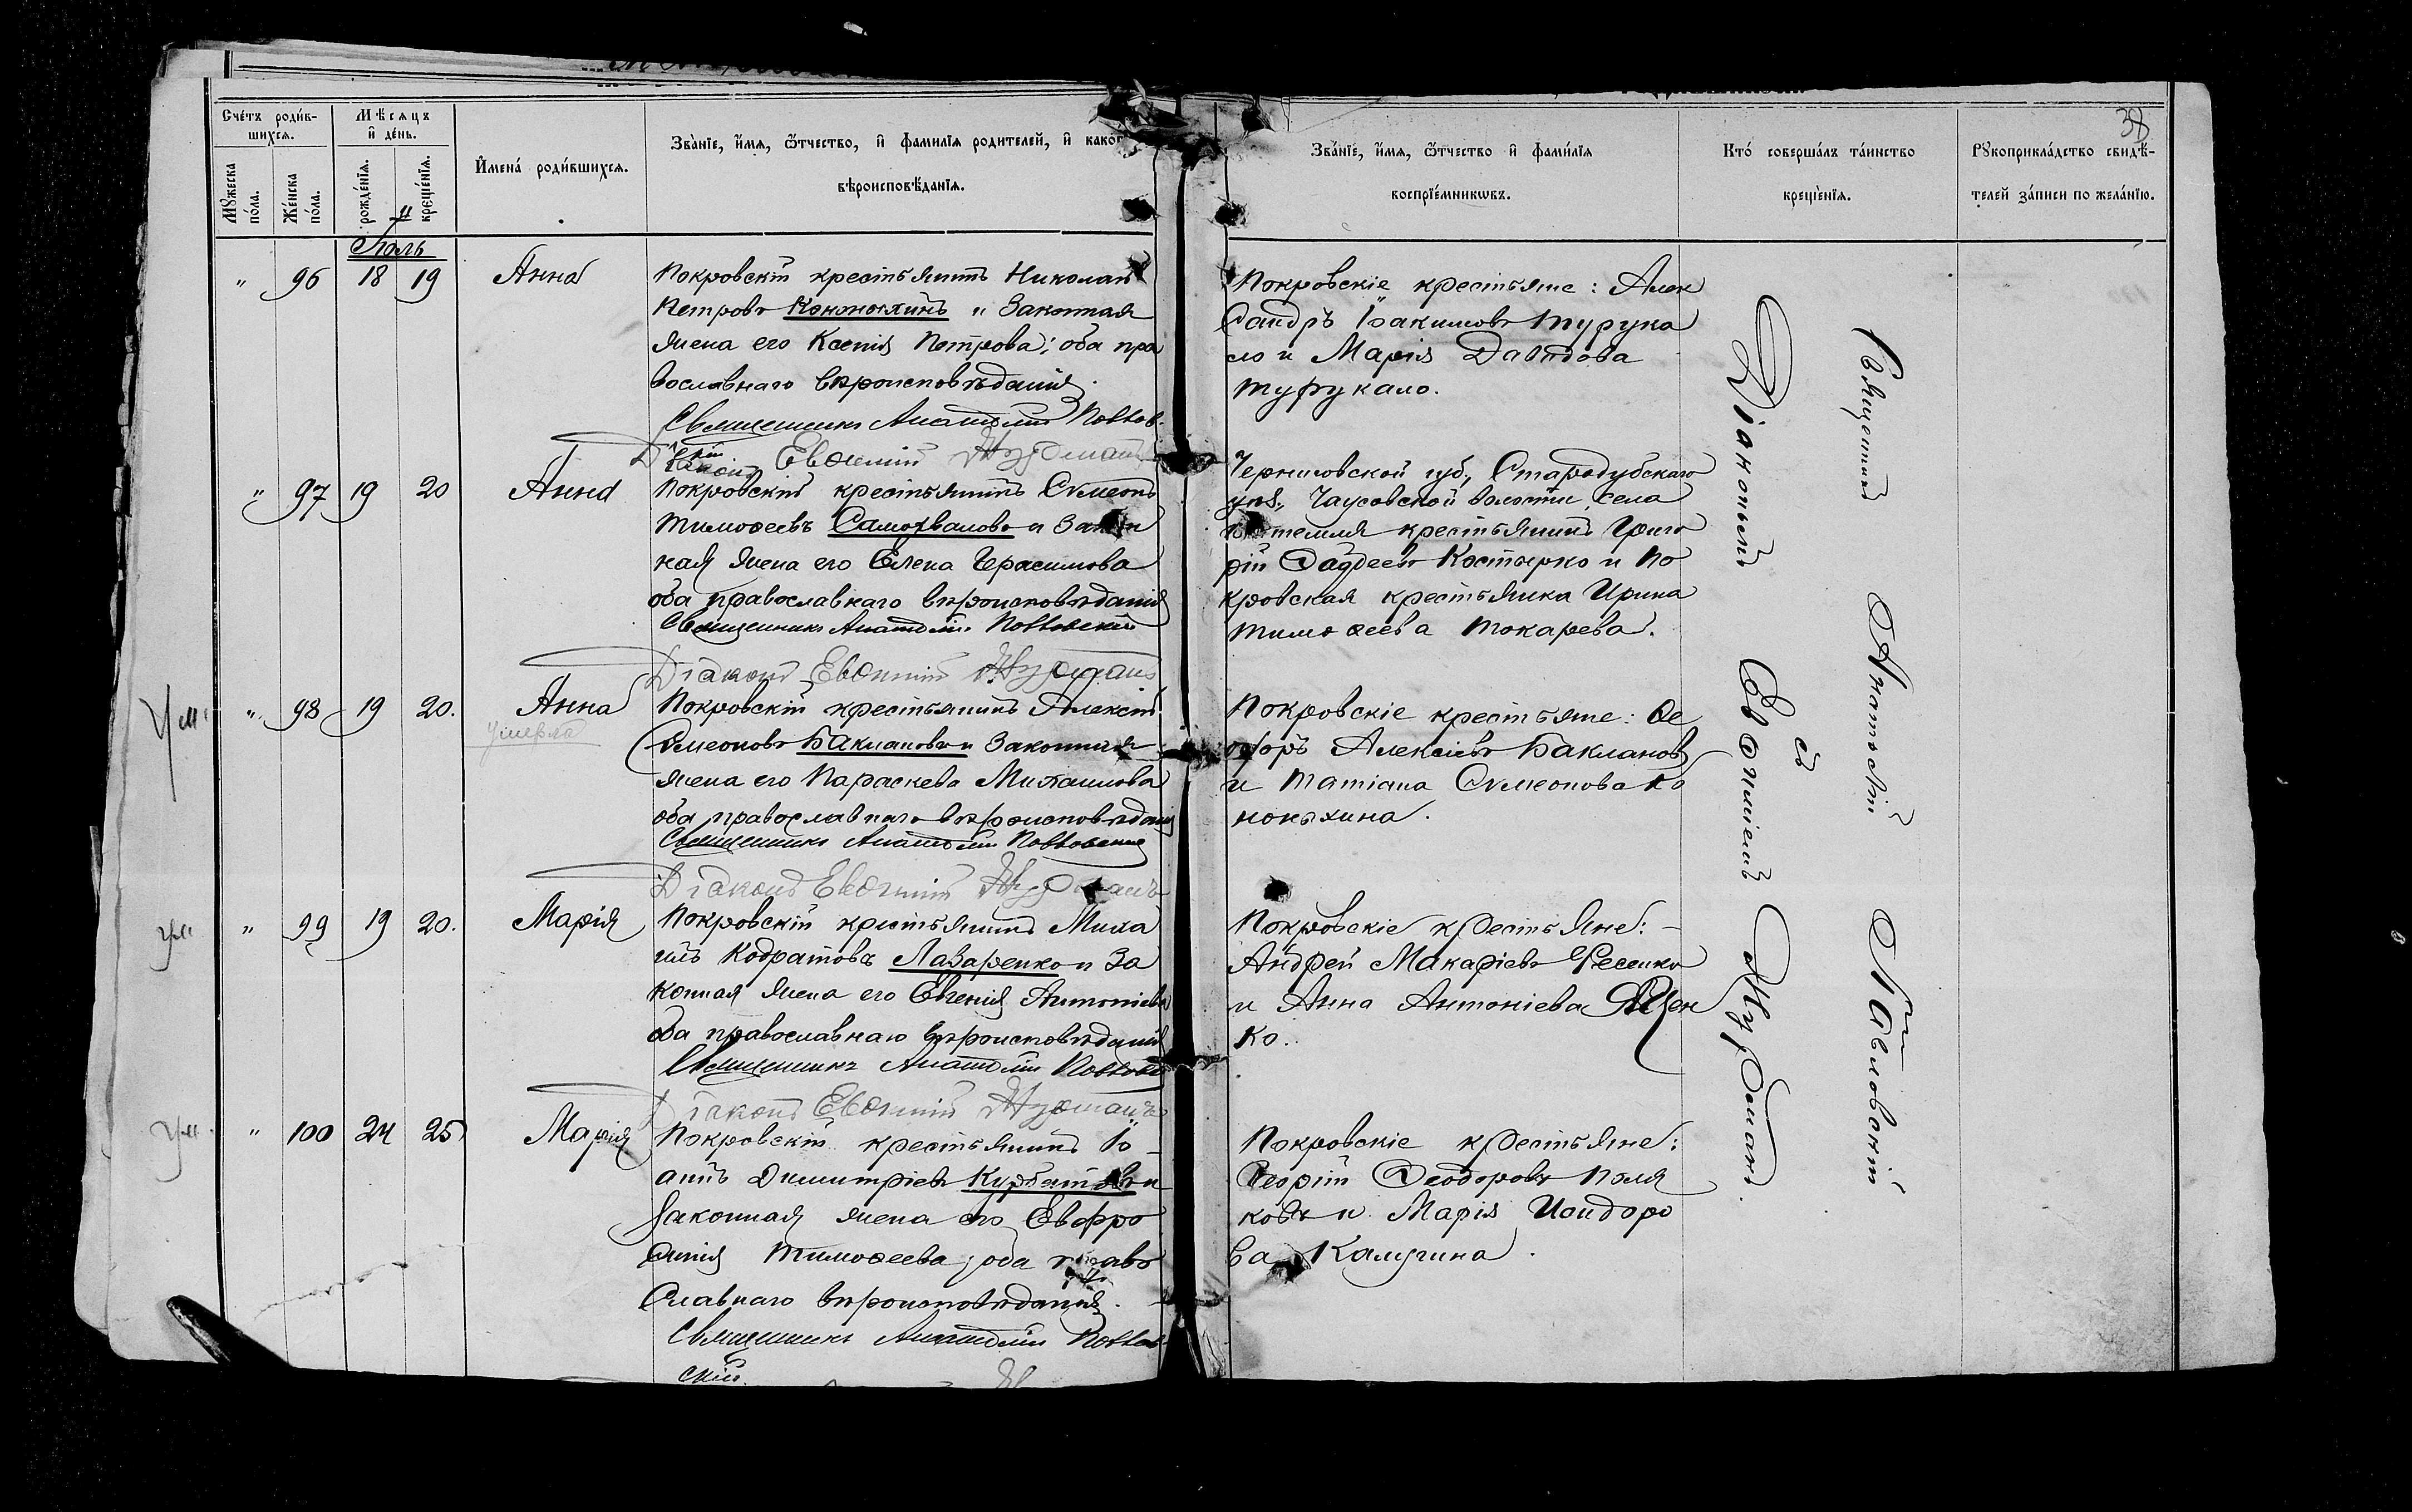 38
Счетъ родив-
шихся.
Мужеска
пола.
Женска
пола.
Мѣсяцъ
и день.
рожденія.
крещенія.
Имена родившихся.
Званіе, имя, отчество, и фамилія родителей, и какого
вѣроисповѣданія.
Званіе, имя, отчество и фамилія
воспріемниковъ.
Кто совершалъ таинство
крещенія.
Рукоприкладство свидѣ-
телей записи по желанію.
Іюль
" 96 18 19 Анна
Покровскій крестьянинъ Николай
Петровъ Конюхинъ и законная
жена его Ксенія Петрова; оба пра
вославнаго вѣроисповѣданія.
Священникъ Анатолій Павлов-
скій
Діаконъ Евѳимій Журманъ
Покровскіе крестьяне: Алек
сандръ Іоакимовъ Турука
ло и Марія Давидова
Турукало.
" 97 19 20 Анна
Покровскій крестьянинъ Сѵмеонъ
Тимоѳеевъ Самохваловъ и закон
ная жена его Елена Герасимова
оба православнаго вѣроисповѣданія
Священникъ Анатолій Павловскій
Діаконъ Евѳимій Журманъ
Черниговской губ., Стародубскаго
уѣз., Чаусовской волости, села
крестьянинъ Григо
рій Фаддеевъ Костырко и по
кровская крестьянка Ирина
Тимоѳеева Токарева.
Ум. " 98 19 20. Анна
умерла
Покровскій крестьянинъ Алексій
Сѵмеоновъ Баклановъ и законная
жена его Параскева Михаилова
оба православнаго вѣроисповѣданія
Священникъ Анатолій Павловскій
Діаконъ Евѳимій Журманъ
Покровскіе крестьяне: Ѳе
одоръ Алексіевъ Баклановъ
и Татіана Сѵмеонова Ко
ноныхина.
ум. " 99 19 20. Марія
Покровскій крестьянинъ Миха
илъ Кодратовъ Лазаренко и за
конная жена его Евгенія Антоніева
оба православнаго вѣроисповѣданія
Священникъ Анатолій Павловскій
Діаконъ Евѳимій Журманъ
Покровскіе крестьяне: -
Андрей Макаріевъ Фесенко
и Анна Антоніева
ко.
ум. " 100 24 25 Марія
Покровскій крестьянинъ Іо-
аннъ Димитріевъ Курбатовъ и
законная жена его Евфро
синія Тимоѳеева; оба право
славнаго вѣроисповѣданія.
Священникъ Анатолій Павлов-
скій.
Покровскіе крестьяне:
Георгій Ѳеодоровъ Поля
ковъ и Марія Исидоро
ва Калугина.
Священникъ Анатолій Павловскій
съ
Діакономъ Евѳиміемъ Журманъ.